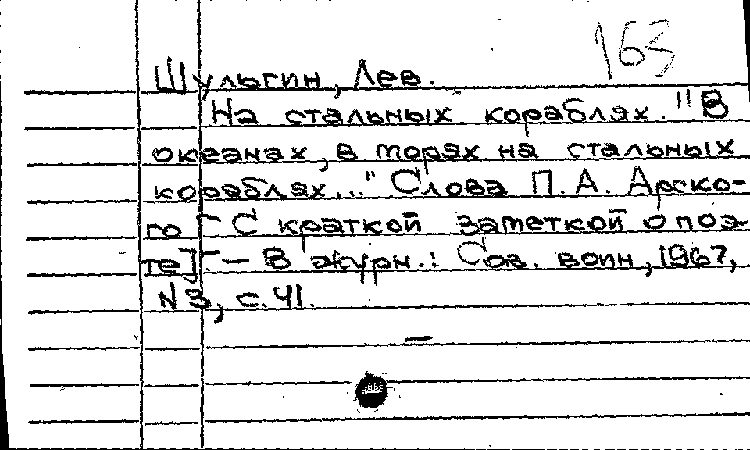 163
Шульгин, Лев.
На стальных кораблях. "В
океанах, в морях на стальных
кораблях..." Слова П. А. Арско-
го [С краткой заметкой о поэ-
те] – В журн.: Сов. воин, 1967,
№3, с. 41.